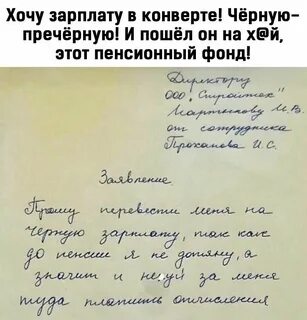 Хочу зарплату в конверте! Чёрную-
пречёрную! И пошёл он на х@й,
этот пенсионный фонд!
Директору
ООО "Стройтех"
Мартынову И.В.
от сотрудника
Проханова И.С.
Заявление.
Прошу перевести меня на
чёрную зарплату, так как
до пенсии я не дотяну, а
значит и нехуй за меня
туда платить отчисления